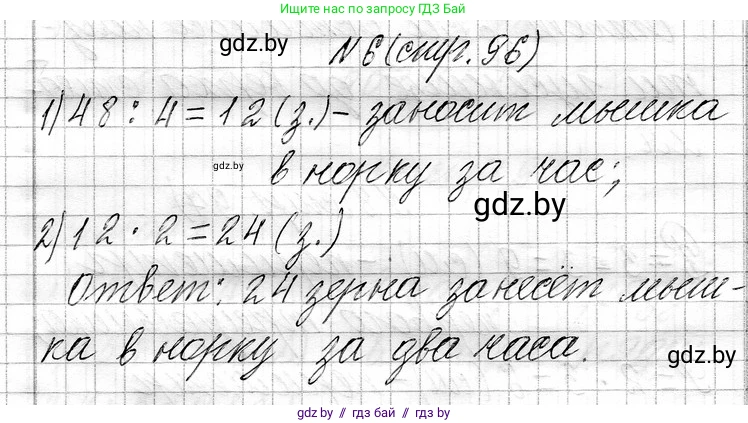 Ищите нас по запросу ГДЗ Бай
gdz.by
№6 (стр. 96)
1) 48 : 4 = 12 (з.) – заносит мышка
gdz.by
в норку за час;
gdz.by
2) 12 · 2 = 24 (з.)
Ответ: 24 зерна занесёт мыш-
ка в норку за два часа.
gdz.by
gdz.by // гдз бай // гдз by